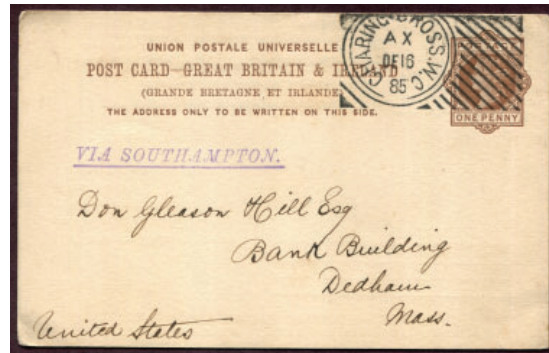 UNION POSTALE UNIVERSELLE
POST CARD—GREAT BRITAIN & IRELAND
(GRANDE BRETAGNE ET IRLANDE)
THE ADDRESS ONLY TO BE WRITTEN ON THIS SIDE.
CHARING·CROSS.W.C
AX
DE16
85
POSTAGE
ONE PENNY
VIA SOUTHAMPTON.
Don Gleason Hill Esq
Bank Building
Dedham
Mass.
United States